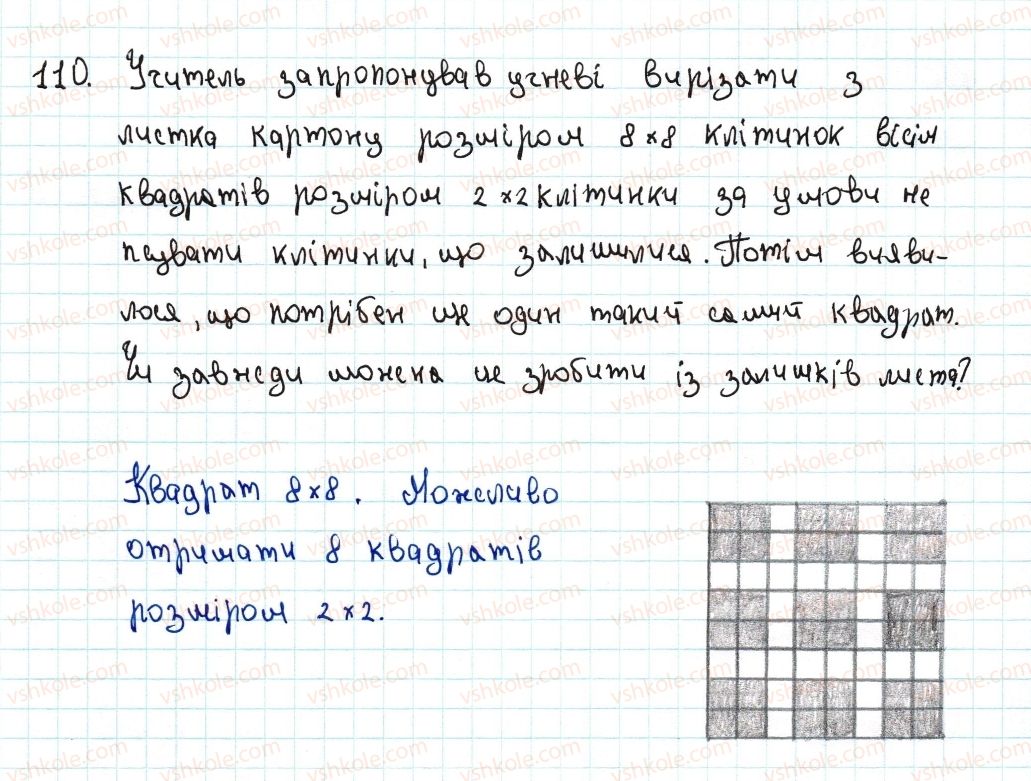 110. Учитель запропонував учневі вирізати з
листка картону розміром 8×8 клітинок вісім
квадратів розміром 2×2 клітинки за умови не
псувати клітинки, що залишилися. Потім вияви-
лося, що потрібен ще один такий самий квадрат.
Чи завжди можна це зробити із залишків листа?
Квадрат 8×8. Можливо
отримати 8 квадратів
розміром 2×2.
vshkole.com